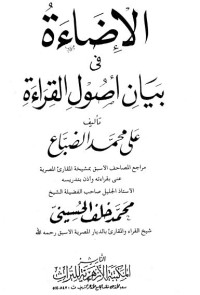 الإضاءة
في
بيان أصول القراءة
تأليف
علي محمد الضباع
مراجع المصاحف الاسبق بمشيخة المقارئ المصرية
عنى بقراءته وأذن بتدريسه
الاستاذ الجليل صاحب الفضيلة الشيخ
محمد خلف الحسيني
شيخ القراء والمقارئ بالديار المصرية الاسبق رحمه الله
الناشر
المكتبة الأزهرية للتراث